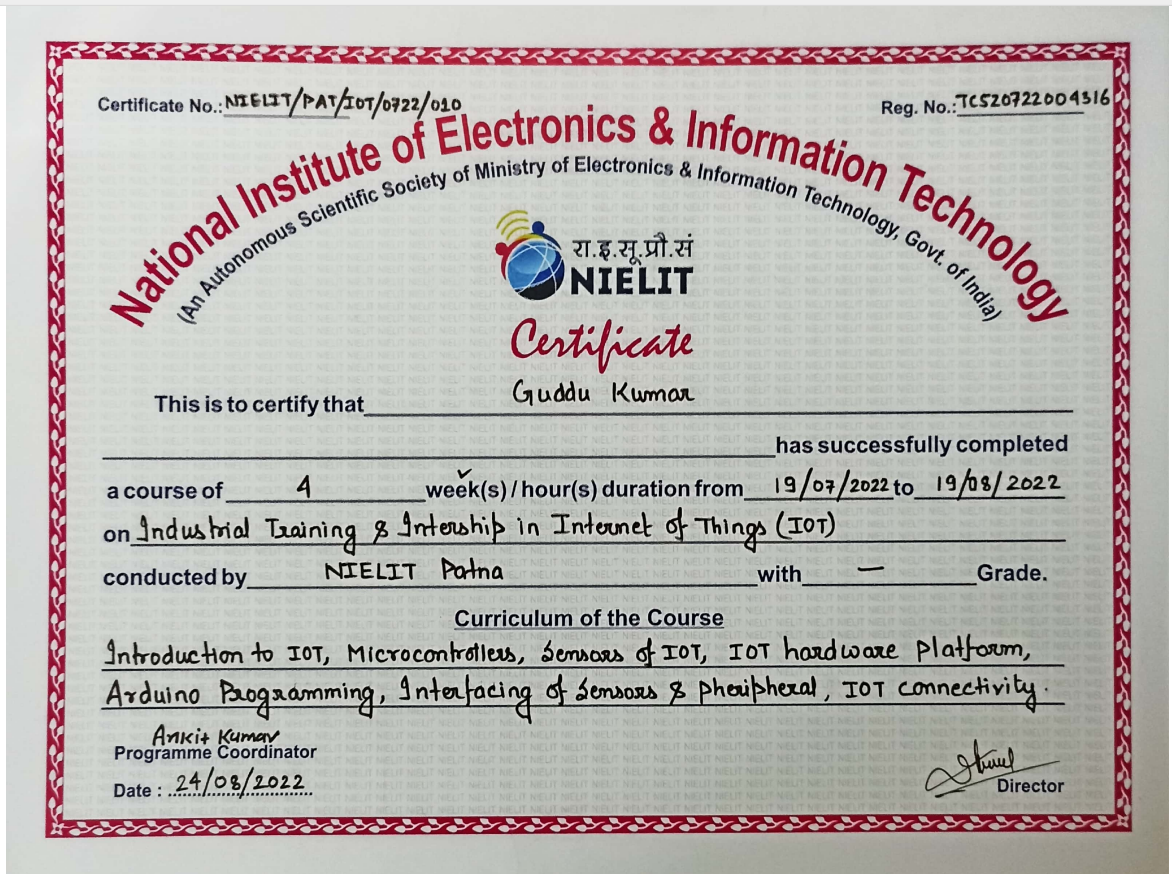 Certificate No.: NIELIT/PAT/IOT/0722/010
Reg. No.: TC520722004316
National Institute of Electronics & Information Technology
(An Autonomous Scientific Society of Ministry of Electronics & Information Technology, Govt. of India)
रा.इ.सू.प्रौ.सं
NIELIT
Certificate
This is to certify that Guddu Kumar
has successfully completed
a course of 4 week(s) / hour(s) duration from 19/07/2022 to 19/08/2022
on Industrial Training & Intership in Internet of Things (IOT)
conducted by NIELIT Patna with — Grade.
Curriculum of the Course
Introduction to IOT, Microcontrollers, Sensors of IOT, IOT hardware Platform,
Arduino Programming, Interfacing of Sensors & pheripheral, IOT connectivity.
Ankit Kumar
Programme Coordinator
Date : 24/08/2022
Director